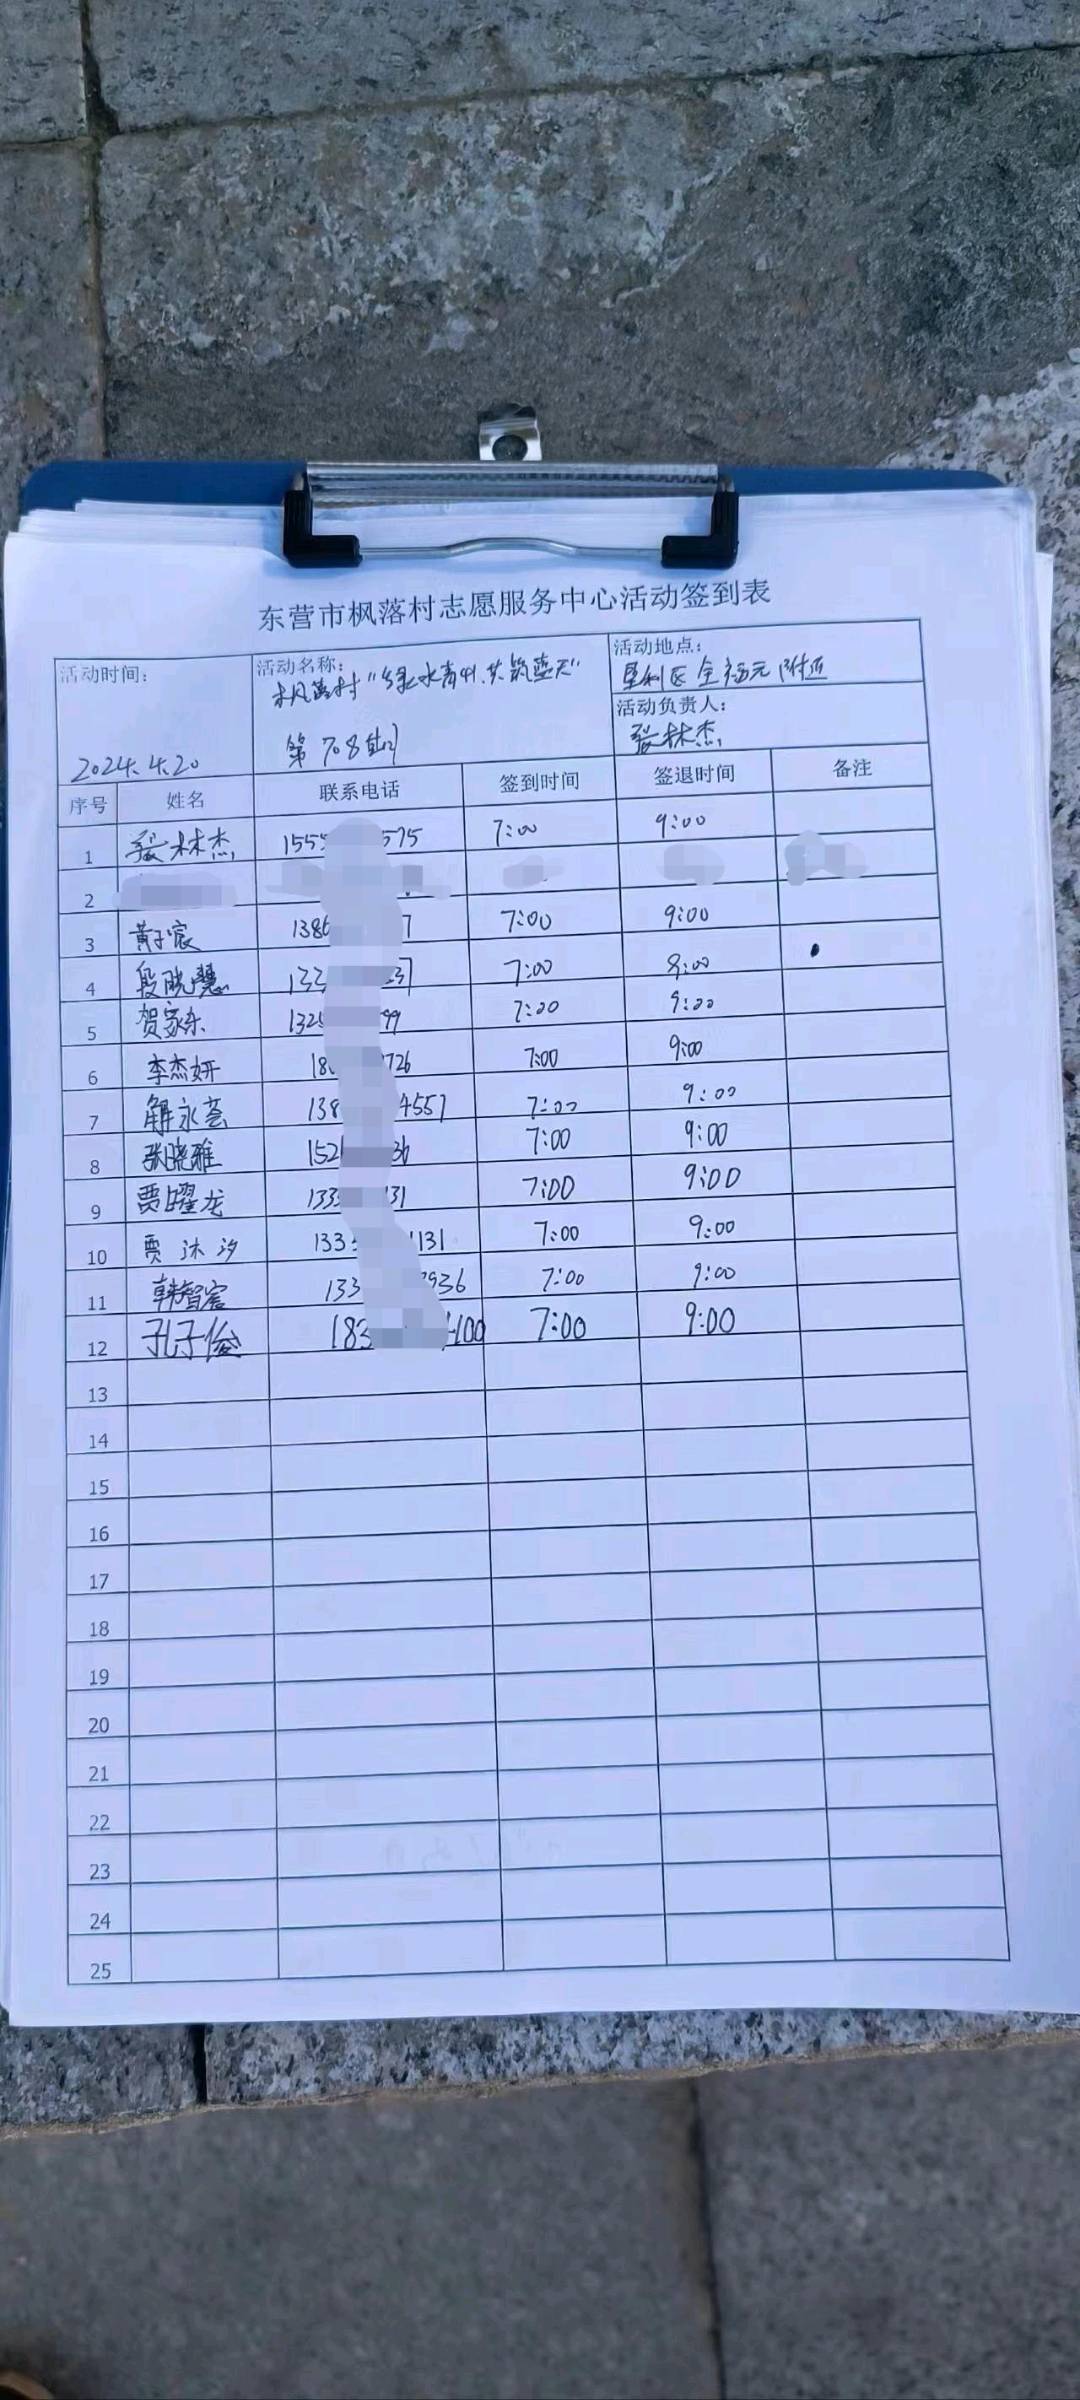 东营市枫落村志愿服务中心活动签到表
活动时间: 2024.4.20
活动名称: 枫落村"绿水青山.共筑蓝天"
第708期
活动地点: 垦利区全福元附近
活动负责人: 张林杰
序号 姓名 联系电话 签到时间 签退时间 备注
1 张林杰 155 575 7:00 9:00
2
3 黄子宸 138 7 7:00 9:00
4 段晓慧 133 37 7:00 9:00
5 贺家乐 132 99 7:00 9:00
6 李杰妍 18 726 7:00 9:00
7 解永荟 138 4557 7:00 9:00
8 张晓雅 152 36 7:00 9:00
9 贾曜龙 133 131 7:00 9:00
10 贾沐汐 133 1131 7:00 9:00
11 韩智宸 133 936 7:00 9:00
12 孔子俊 183 100 7:00 9:00
13
14
15
16
17
18
19
20
21
22
23
24
25